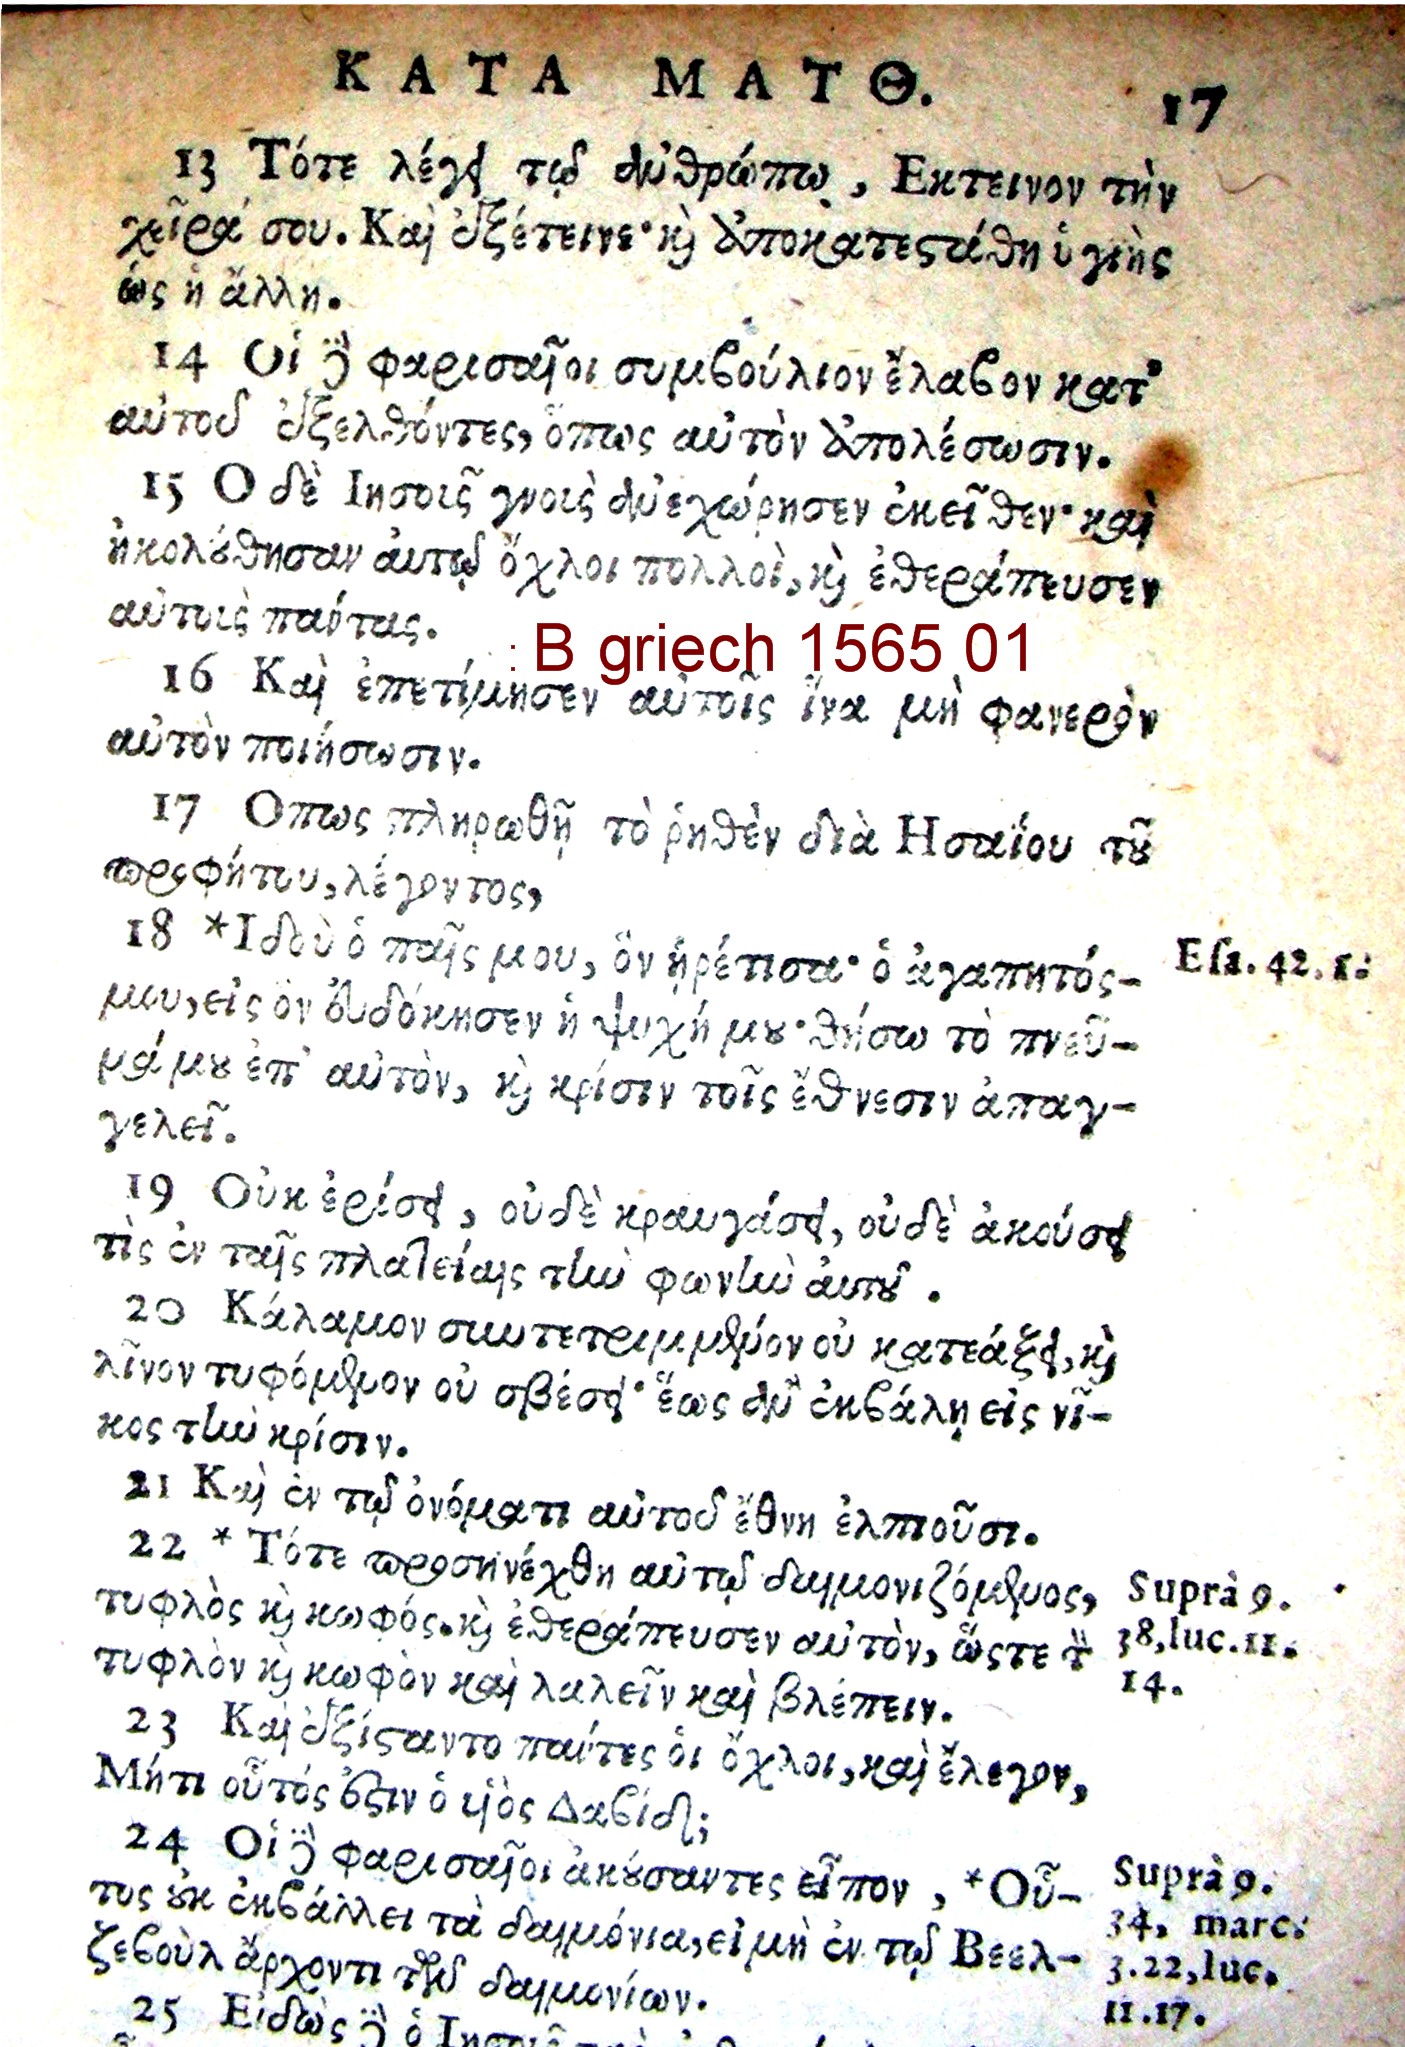 ΚΑΤΑ ΜΑΤΘ. 17
13 Τότε λέγει τῷ ἀνθρώπῳ, Εκτεινον τὴν
χεῖρά σου. Καὶ ἐξέτεινε· καὶ ἀποκατεστάθη ὑγιὴς
ὡς ἡ ἄλλη.
14 Οἱ δὲ φαρισαῖοι συμβούλιον ἔλαβον κατ'
αὐτοῦ ἐξελθόντες, ὅπως αὐτὸν ἀπολέσωσιν.
15 Ο δὲ Ιησοῦς γνοὺς ἀνεχώρησεν ἐκεῖθεν· καὶ
ἠκολούθησαν ἀυτῷ ὄχλοι πολλοὶ, καὶ ἐθεράπευσεν
αὐτοὺς πάντας.
: B griech 1565 01
16 Καὶ ἐπετίμησεν αὐτοῖς ἵνα μὴ φανερὸν
αὐτὸν ποιήσωσιν.
17 Οπως πληρωθῇ τὸ ῥηθὲν διὰ Ησαΐου τοῦ
προφήτου, λέγοντος,
18 *Ιδοὺ ὁ παῖς μου, ὃν ᾑρέτισα· ὁ ἀγαπητός-
μου, εἰς ὃν εὐδόκησεν ἡ ψυχή μου· θήσω τὸ πνεῦ-
μά μου ἐπ' αὐτὸν, καὶ κρίσιν τοῖς ἔθνεσιν ἀπαγ-
γελεῖ.
Esa. 42.1.
19 Οὐκ ἐρίσει, οὐδὲ κραυγάσει, οὐδὲ ἀκούσει
τὶς ἐν ταῖς πλατείαις τὴν φωνὴν ἀυτοῦ.
20 Κάλαμον συντετριμμένον οὐ κατεάξει, καὶ
λῖνον τυφόμενον οὐ σβέσει· ἕως ἂν ἐκβάλῃ εἰς νῖ-
κος τὴν κρίσιν.
21 Καὶ ἐν τῷ ὀνόματι αὐτοῦ ἔθνη ἐλπιοῦσι.
22 *Τότε προσηνέχθη αὐτῷ δαιμονιζόμενος,
τυφλὸς καὶ κωφός. καὶ ἐθεράπευσεν αὐτὸν, ὥστε τὸν
τυφλὸν καὶ κωφὸν καὶ λαλεῖν καὶ βλέπειν.
Suprà 9.
38, luc. 11.
14.
23 Καὶ ἐξίσταντο πάντες ὁι ὄχλοι, καὶ ἔλεγον,
Μήτι οὗτός ἐστιν ὁ υἱὸς Δαβίδ;
24 Οἱ δὲ φαρισαῖοι ἀκούσαντες εἶπον, *Οὗ-
τος οὐκ ἐκβάλλει τὰ δαιμόνια, εἰ μὴ ἐν τῷ Βεελ-
ζεβοὺλ ἄρχοντι τῶν δαιμονίων.
Suprà 9.
34, marc.
3.22, luc.
11.17.
25 Εἰδὼς δὲ ὁ Ιησοῦς